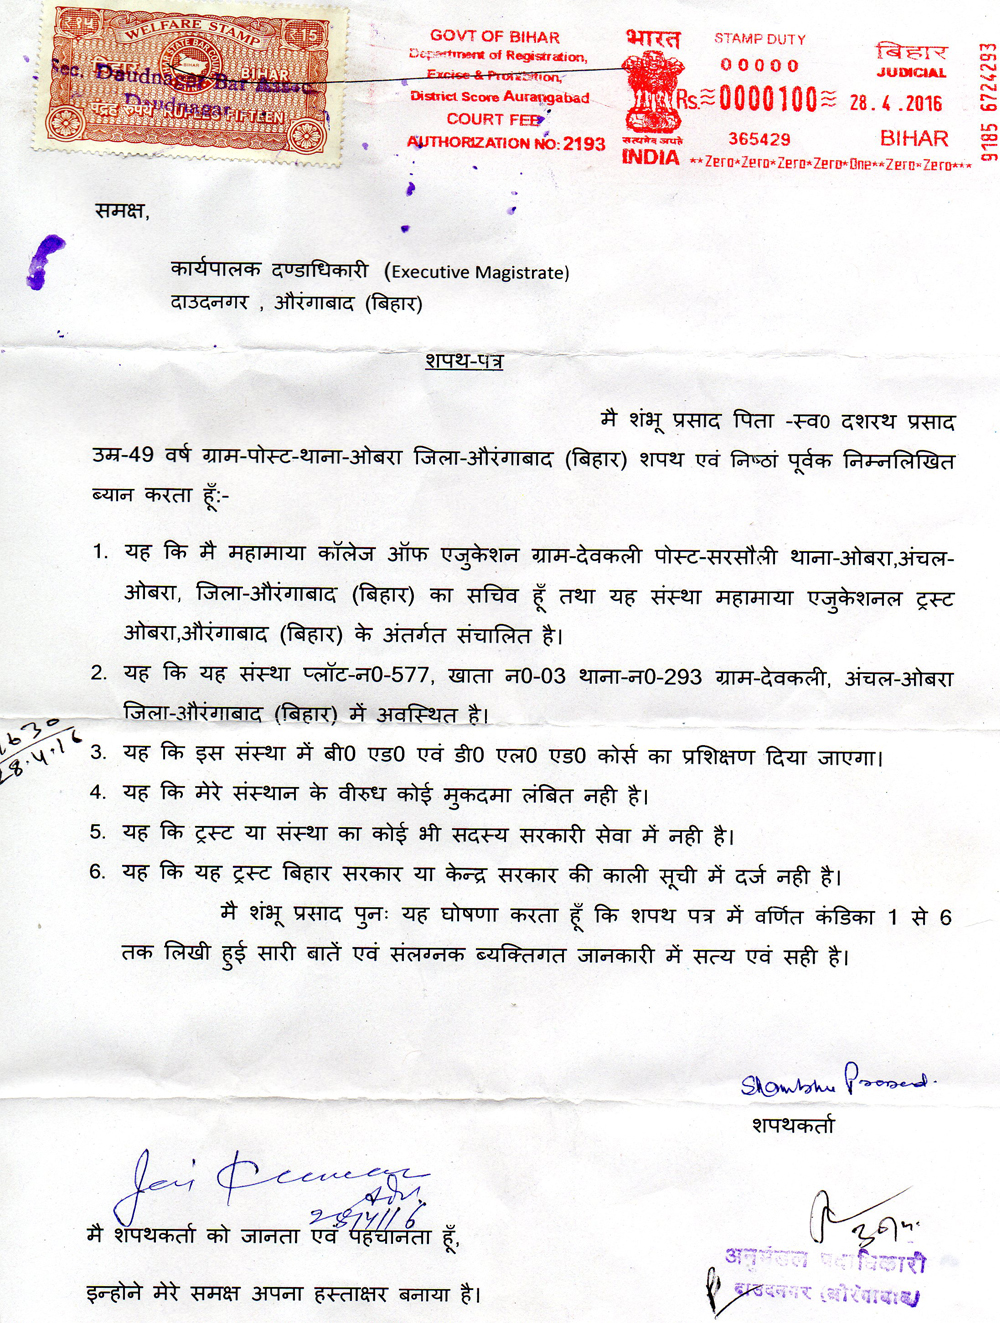 ₹१५ WELFARE STAMP ₹15
STATE BAR COUNCIL
बिहार BIHAR
Sec. Daudnagar Bar Assoc.
Daudnagar
पंद्रह रुपये RUPEES FIFTEEN
GOVT OF BIHAR
Department of Registration,
Excise & Prohibition,
District Score Aurangabad
COURT FEE
AUTHORIZATION NO: 2193
भारत
सत्यमेव जयते
INDIA
STAMP DUTY
00000
Rs.≈0000100≈ 28.4.2016
365429
**Zero*Zero*Zero*Zero*One**Zero*Zero***
बिहार
JUDICIAL
BIHAR
9185 6724293
समक्ष,
कार्यपालक दण्डाधिकारी (Executive Magistrate)
दाउदनगर , औरंगाबाद (बिहार)
शपथ-पत्र
मै शंभू प्रसाद पिता -स्व0 दशरथ प्रसाद
उम्र-49 वर्ष ग्राम-पोस्ट-थाना-ओबरा जिला-औरंगाबाद (बिहार) शपथ एवं निष्ठां पूर्वक निम्नलिखित
ब्यान करता हूँ:-
1. यह कि मै महामाया कॉलेज ऑफ एजुकेशन ग्राम-देवकली पोस्ट-सरसौली थाना-ओबरा,अंचल-
ओबरा, जिला-औरंगाबाद (बिहार) का सचिव हूँ तथा यह संस्था महामाया एजुकेशनल ट्रस्ट
ओबरा,औरंगाबाद (बिहार) के अंतर्गत संचालित है।
2. यह कि यह संस्था प्लॉट-न0-577, खाता न0-03 थाना-न0-293 ग्राम-देवकली, अंचल-ओबरा
जिला-औरंगाबाद (बिहार) में अवस्थित है।
1630
28.4.16
3. यह कि इस संस्था में बी0 एड0 एवं डी0 एल0 एड0 कोर्स का प्रशिक्षण दिया जाएगा।
4. यह कि मेरे संस्थान के वीरुध कोई मुकदमा लंबित नही है।
5. यह कि ट्रस्ट या संस्था का कोई भी सदस्य सरकारी सेवा में नही है।
6. यह कि यह ट्रस्ट बिहार सरकार या केन्द्र सरकार की काली सूची में दर्ज नही है।
मै शंभू प्रसाद पुनः यह घोषणा करता हूँ कि शपथ पत्र में वर्णित कंडिका 1 से 6
तक लिखी हुई सारी बातें एवं संलग्नक ब्यक्तिगत जानकारी में सत्य एवं सही है।
Shambhu Prasad.
शपथकर्ता
Kumar
Adv.
28/4/16
मै शपथकर्ता को जानता एवं पहचानता हूँ,
अनुमंडल पदाधिकारी
दाउदनगर (औरंगाबाद)
इन्होने मेरे समक्ष अपना हस्ताक्षर बनाया है।